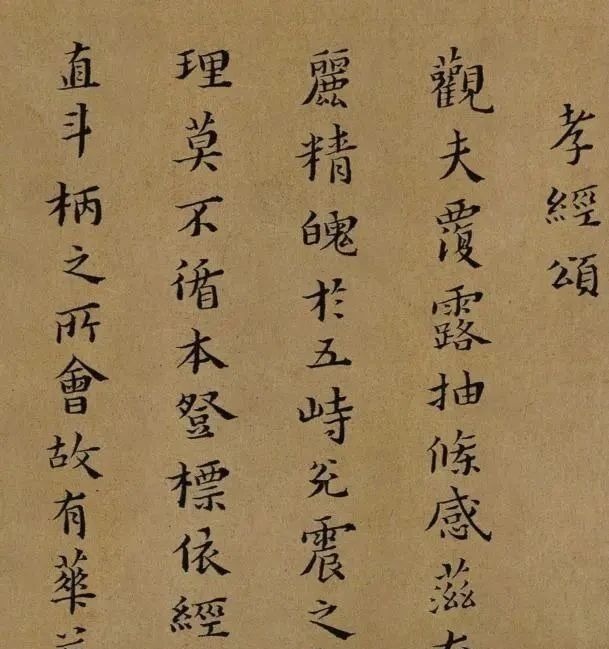 孝經頌
觀夫覆露抽條感滋
麗精魄於五峙兊震之
理莫不循本登標依經
直斗柄之所會故有華